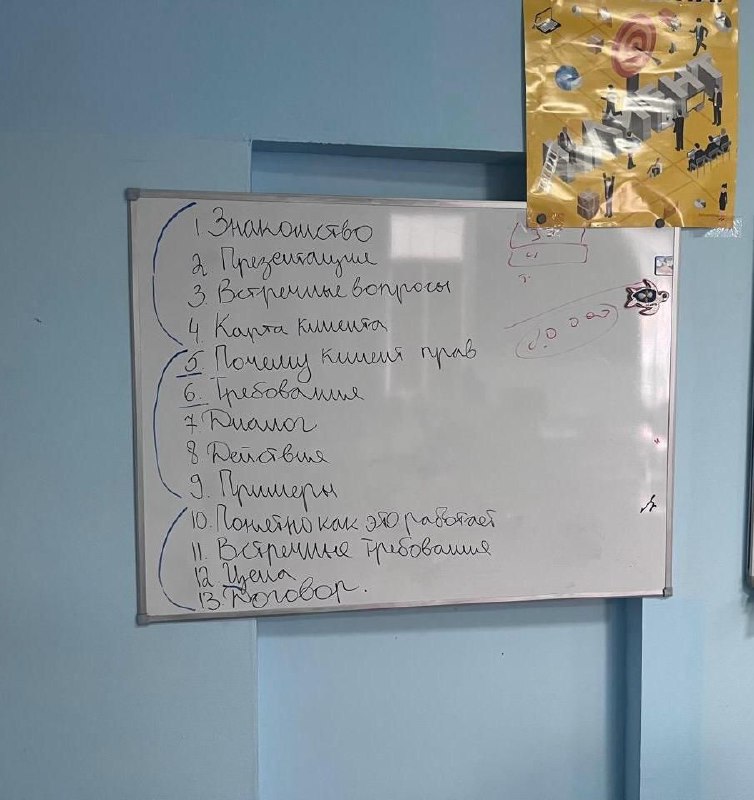 1 Знакомство
2 Презентация
3 Встречные вопросы
4. Карта клиента
5 Почему клиент прав
6. Требования
7 Диалог
8 Действия
9. Примеры
10. Понятно как это работает
11. Встречные требования
12 Цена
13. Договор.